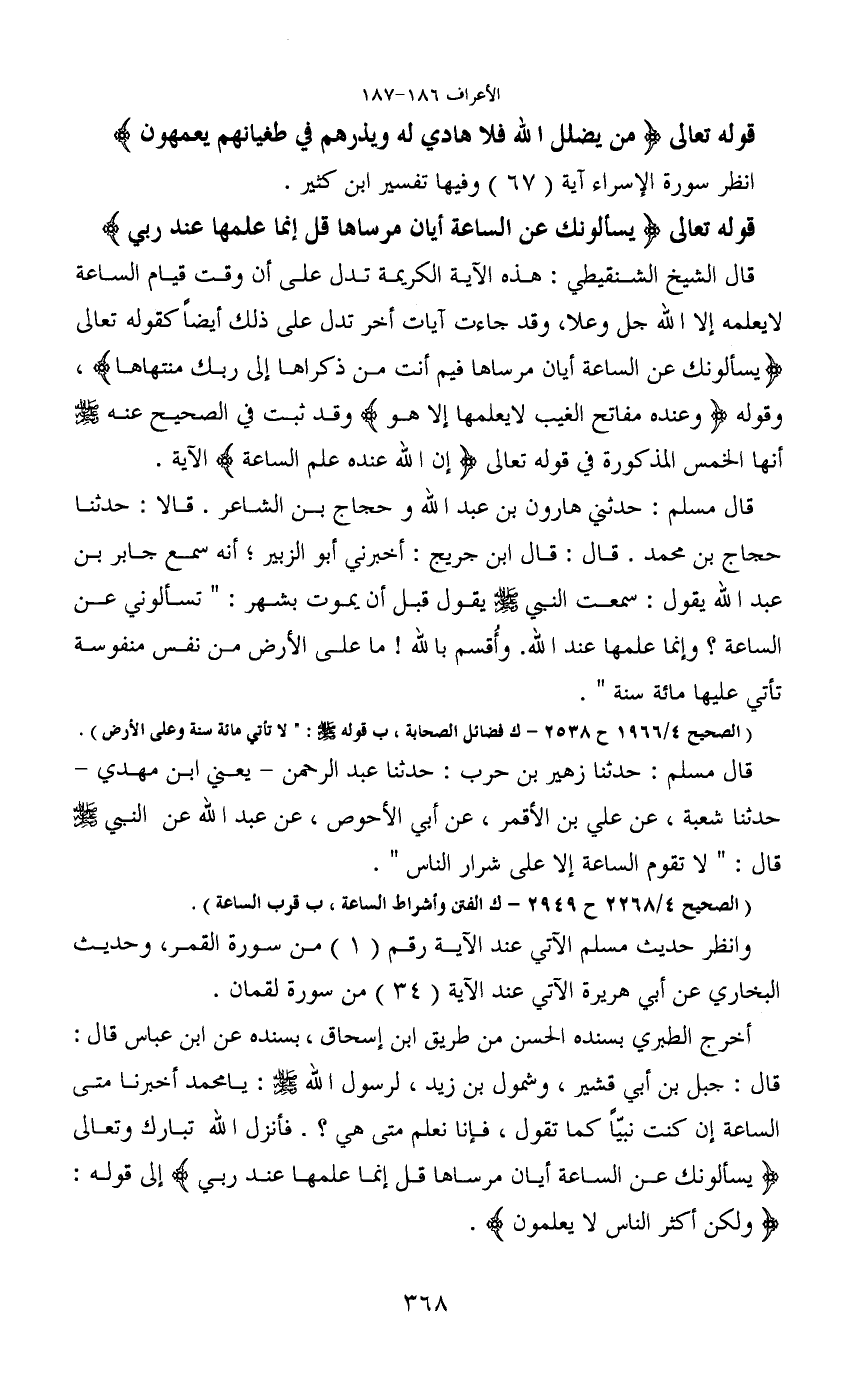 الأعراف ١٨٦-١٨٧
قوله تعالى ﴿ من يضلل الله فلا هادي له ويذرهم في طغيانهم يعمهون ﴾
انظر سورة الإسراء آية ( ٦٧ ) وفيها تفسير ابن كثير .
قوله تعالى ﴿ يسألونك عن الساعة أيان مرساها قل إنما علمها عند ربي ﴾
قال الشيخ الشنقيطي : هذه الآية الكريمة تدل على أن وقت قيام الساعة
لايعلمه إلا الله جل وعلا، وقد جاءت آيات أخر تدل على ذلك أيضاً كقوله تعالى
﴿يسألونك عن الساعة أيان مرساها فيم أنت من ذكراها إلى ربك منتهاها﴾ ،
وقوله ﴿ وعنده مفاتح الغيب لايعلمها إلا هو ﴾ وقد ثبت في الصحيح عنه ﷺ
أنها الخمس المذكورة في قوله تعالى ﴿ إن الله عنده علم الساعة ﴾ الآية .
قال مسلم : حدثني هارون بن عبد الله و حجاج بن الشاعر . قالا : حدثنا
حجاج بن محمد . قال : قال ابن جريج : أخبرني أبو الزبير ؛ أنه سمع جابر بن
عبد الله يقول : سمعت النبي ﷺ يقول قبل أن يموت بشهر : " تسألوني عن
الساعة ؟ وإنما علمها عند الله. وأُقسم بالله ! ما على الأرض من نفس منفوسة
تأتي عليها مائة سنة " .
( الصحيح ١٩٦٦/٤ ح ٢٥٣٨ - ك فضائل الصحابة ، ب قوله ﷺ : " لا تأتي مائة سنة وعلى الأرض ) .
قال مسلم : حدثنا زهير بن حرب : حدثنا عبد الرحمن - يعني ابن مهدي -
حدثنا شعبة ، عن علي بن الأقمر ، عن أبي الأحوص ، عن عبد الله عن النبي ﷺ
قال : " لا تقوم الساعة إلا على شرار الناس " .
( الصحيح ٢٢٦٨/٤ ح ٢٩٤٩ - ك الفتن وأشراط الساعة ، ب قرب الساعة ) .
وانظر حديث مسلم الآتي عند الآية رقم ( ١ ) من سورة القمر، وحديث
البخاري عن أبي هريرة الآتي عند الآية ( ٣٤ ) من سورة لقمان .
أخرج الطبري بسنده الحسن من طريق ابن إسحاق ، بسنده عن ابن عباس قال :
قال : جبل بن أبي قشير ، وشمول بن زيد ، لرسول الله ﷺ : يامحمد أخبرنا متى
الساعة إن كنت نبيّاً كما تقول ، فإنا نعلم متى هي ؟ . فأنزل الله تبارك وتعالى
﴿ يسألونك عن الساعة أيان مرساها قل إنما علمها عند ربي ﴾ إلى قوله :
﴿ ولكن أكثر الناس لا يعلمون ﴾ .
٣٦٨